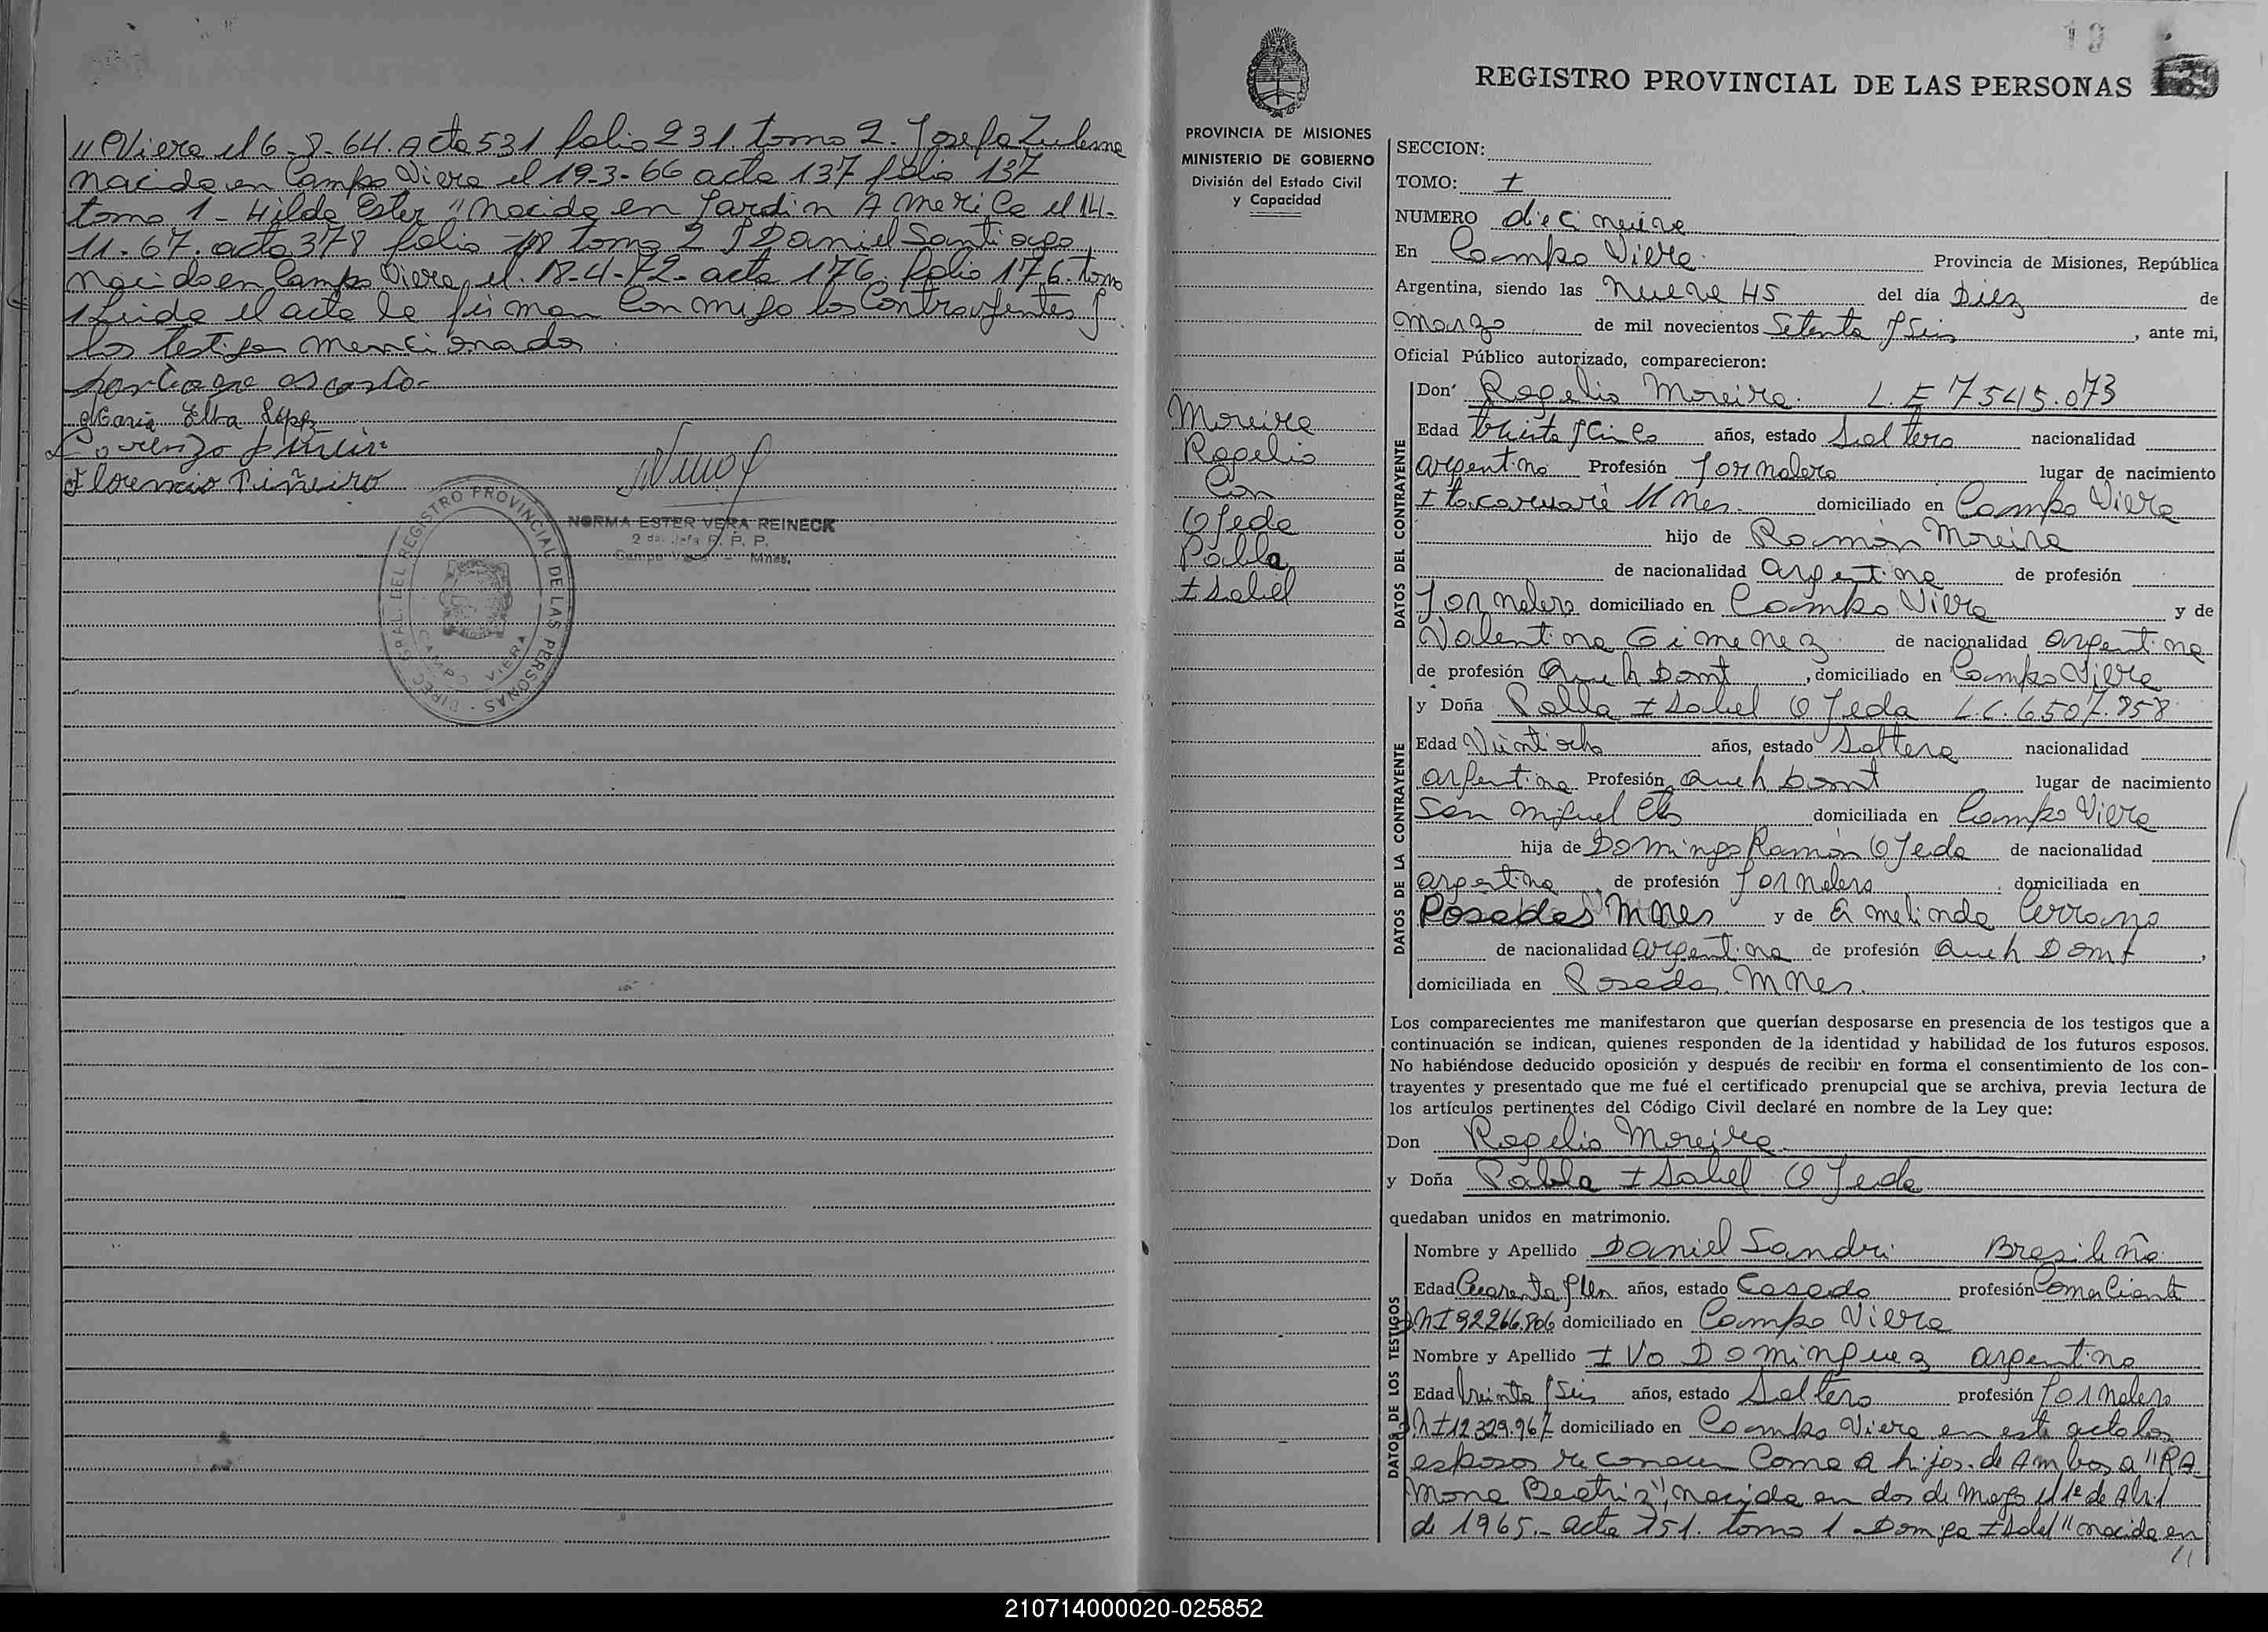 " Viera el 6-8-64. acta 531 folio 231. tomo 2. Josefa Zulema
nacida en Campo Viera el 19-3-66 acta 137 folio 137
tomo 1- Hilda Ester " nacida en Jardin America el 14-
11-67. acta 378 folio tomo 2 y Daniel Santiago
nacido en Campo Viera el. 18-4-72- acta 176. folio 176. tomo
1 Leida el acta la firman conmigo los Contrayentes y
los testigos mencionados
Maria Elba
Lorenzo
Florencio Piñeiro
NORMA ESTER VERA REINECK
2 da. Jefa R. P. P.
Campo Viera - Mnes.
DIREC. GRAL. DEL REGISTRO PROVINCIAL DE LAS PERSONAS
CAMPO VIERA
19
139
REGISTRO PROVINCIAL DE LAS PERSONAS
PROVINCIA DE MISIONES
MINISTERIO DE GOBIERNO
División del Estado Civil
y Capacidad
Moreira
Rogelio
Con
Ojeda
Pabla
Isabel
SECCION:
TOMO: I
NUMERO diecinueve
En Campo Viera Provincia de Misiones, República
Argentina, siendo las nueve 45 del día Diez de
marzo de mil novecientos Setenta y Seis, ante mi,
Oficial Público autorizado, comparecieron:
DATOS DEL CONTRAYENTE
Don Rogelio Moreira. L.E 7545.073
Edad treinta y Cinco años, estado Soltero nacionalidad
argentino Profesión Jornalero lugar de nacimiento
Itacaruaré Mnes. domiciliado en Campo Viera
hijo de Ramón Moreira
de nacionalidad argentina de profesión
Jornalero domiciliado en Campo Viera y de
Valentina Gimenez de nacionalidad argentina
de profesión Queh Domt, domiciliado en Campo Viera
DATOS DE LA CONTRAYENTE
y Doña Pabla Isabel Ojeda L.C. 6.507.858
Edad Veintiocho años, estado Soltera nacionalidad
argentina Profesión Queh Domt lugar de nacimiento
San Miguel Ctes domiciliada en Campo Viera
hija de Domingo Ramón Ojeda de nacionalidad
argentina, de profesión Jornalero, domiciliada en
Posadas Mnes y de Ermelinda Cerrano
de nacionalidad argentina de profesión Queh Domt,
domiciliada en Posadas Mnes.
Los comparecientes me manifestaron que querían desposarse en presencia de los testigos que a
continuación se indican, quienes responden de la identidad y habilidad de los futuros esposos.
No habiéndose deducido oposición y después de recibir en forma el consentimiento de los con-
trayentes y presentado que me fué el certificado prenupcial que se archiva, previa lectura de
los artículos pertinentes del Código Civil declaré en nombre de la Ley que:
Don Rogelio Moreira
y Doña Pabla Isabel Ojeda
quedaban unidos en matrimonio.
DATOS DE LOS TESTIGOS
Nombre y Apellido Daniel Sandri Brasileño
Edad Cuarenta y Un años, estado Casado profesión Comerciante
DNI 92266.806 domiciliado en Campo Viera
Nombre y Apellido Ivo Dominguez argentino
Edad treinta y Seis años, estado Soltero profesión Jornalero
DNI 12.329.967 domiciliado en Campo Viera en este acto los
esposos reconocen Como a hijos de Ambos a "RA
mona Beatriz", nacida en dos de Mayo el 1º de Abril
de 1965.- acta 751. tomo 1 Isabel" nacida en
"
210714000020-025852